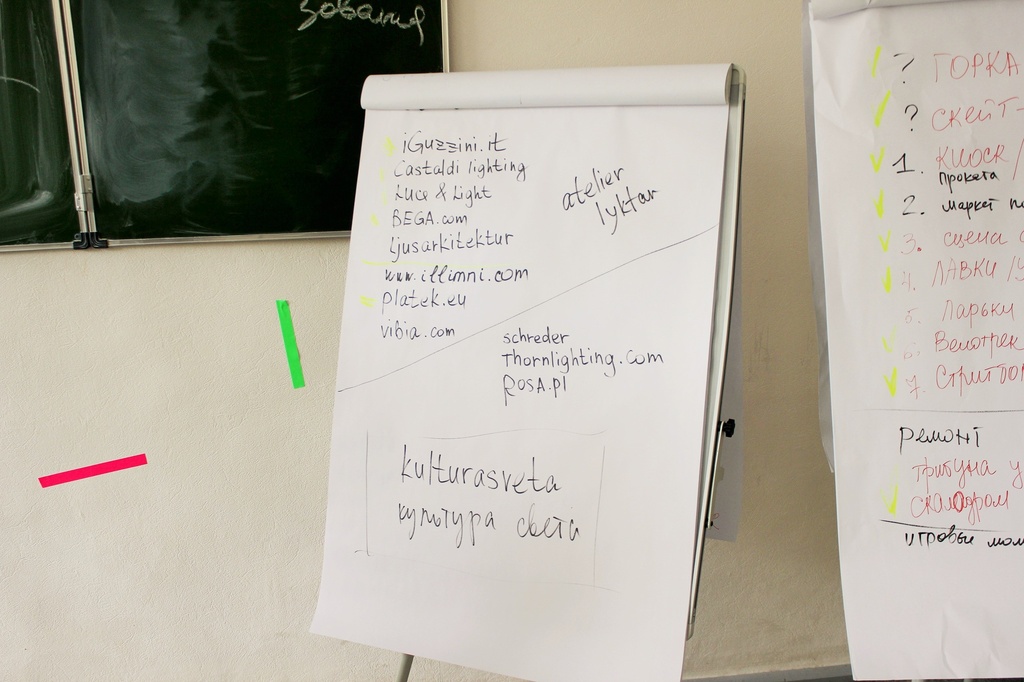 зования
iGuzzini.it
Castaldi lighting
Luce & Light
BEGA.com
Ljusarkitektur
www.illimni.com
platek.eu
vibia.com
atelier
lyktan
schreder
Thornlighting.com
ROSA.pl
kulturasveta
культура света
? ГОРКА
? СКЕЙТ-
1. КИОСК /
Проката
2. маркет
3. сцена
4. ЛАВКИ /
5. Ларьки
6. Велотрек
7.
РЕМОНТ
трибуна у
скалодром
игровые